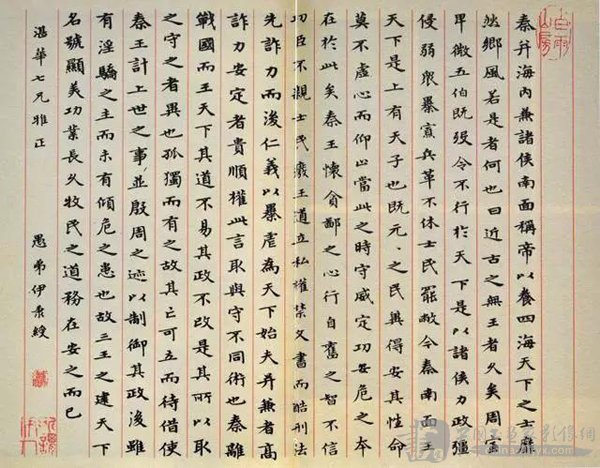 秦并海内兼諸侯南面稱帝以養四海天下之士靡
然鄉風若是者何也曰近古之無王者久矣周室
卑微五伯既没令不行於天下是以諸侯力政彊
侵弱眾暴寡兵革不休士民罷敝今秦南面王
天下是上有天子也既元々之民兾得安其性命
莫不虛心而仰上當此之時守威定功安危之本
在於此矣秦王懷貪鄙之心行自奮之智不信
功臣不親士民廢王道立私權禁文書而酷刑法
先詐力而後仁義以暴虐為天下始夫并兼者高
詐力安定者貴順權此言取與守不同術也秦離
戰國而王天下其道不易其政不改是其所以取
之守之者異也孤獨而有之故其亡可立而待借使
秦王計上世之事並殷周之迹以制御其政後雖
有淫驕之主而未有傾危之患也故三王之建天下
名號顯美功業長久牧民之道務在安之而已
湛華七兄雅正
愚弟伊秉綬